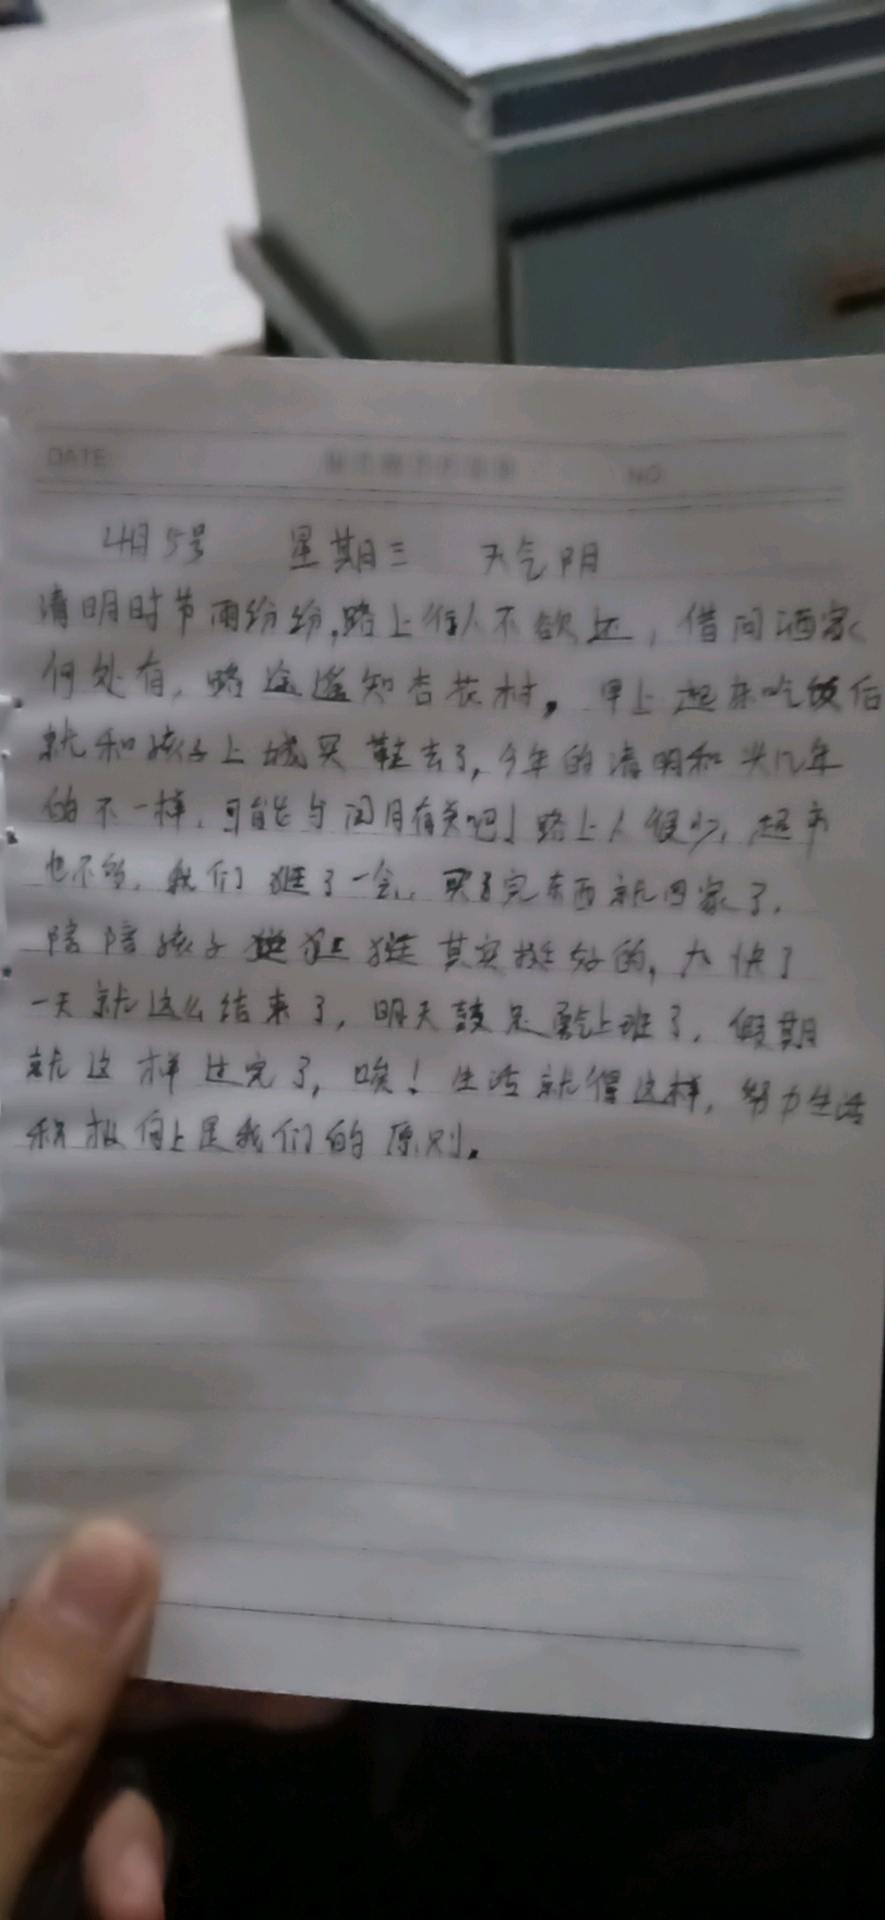 DATE NO
4月5号 星期三 天气阴
清明时节雨纷纷,路上行人不欲还,借问酒家
何处有,路途遥知杏花村。早上起来吃饭后
就和孩子上城买鞋去了,今年的清明和头几年
的不一样,可能与闰月有关吧!路上人很少,超市
也不多,我们逛了一会,买了完东西就回家了,
陪陪孩子逛逛其实挺好的,太快了
一天就这么结束了,明天鼓足勇气上班了,假期
就这样过完了,唉!生活就得这样,努力生活
积极向上是我们的原则。